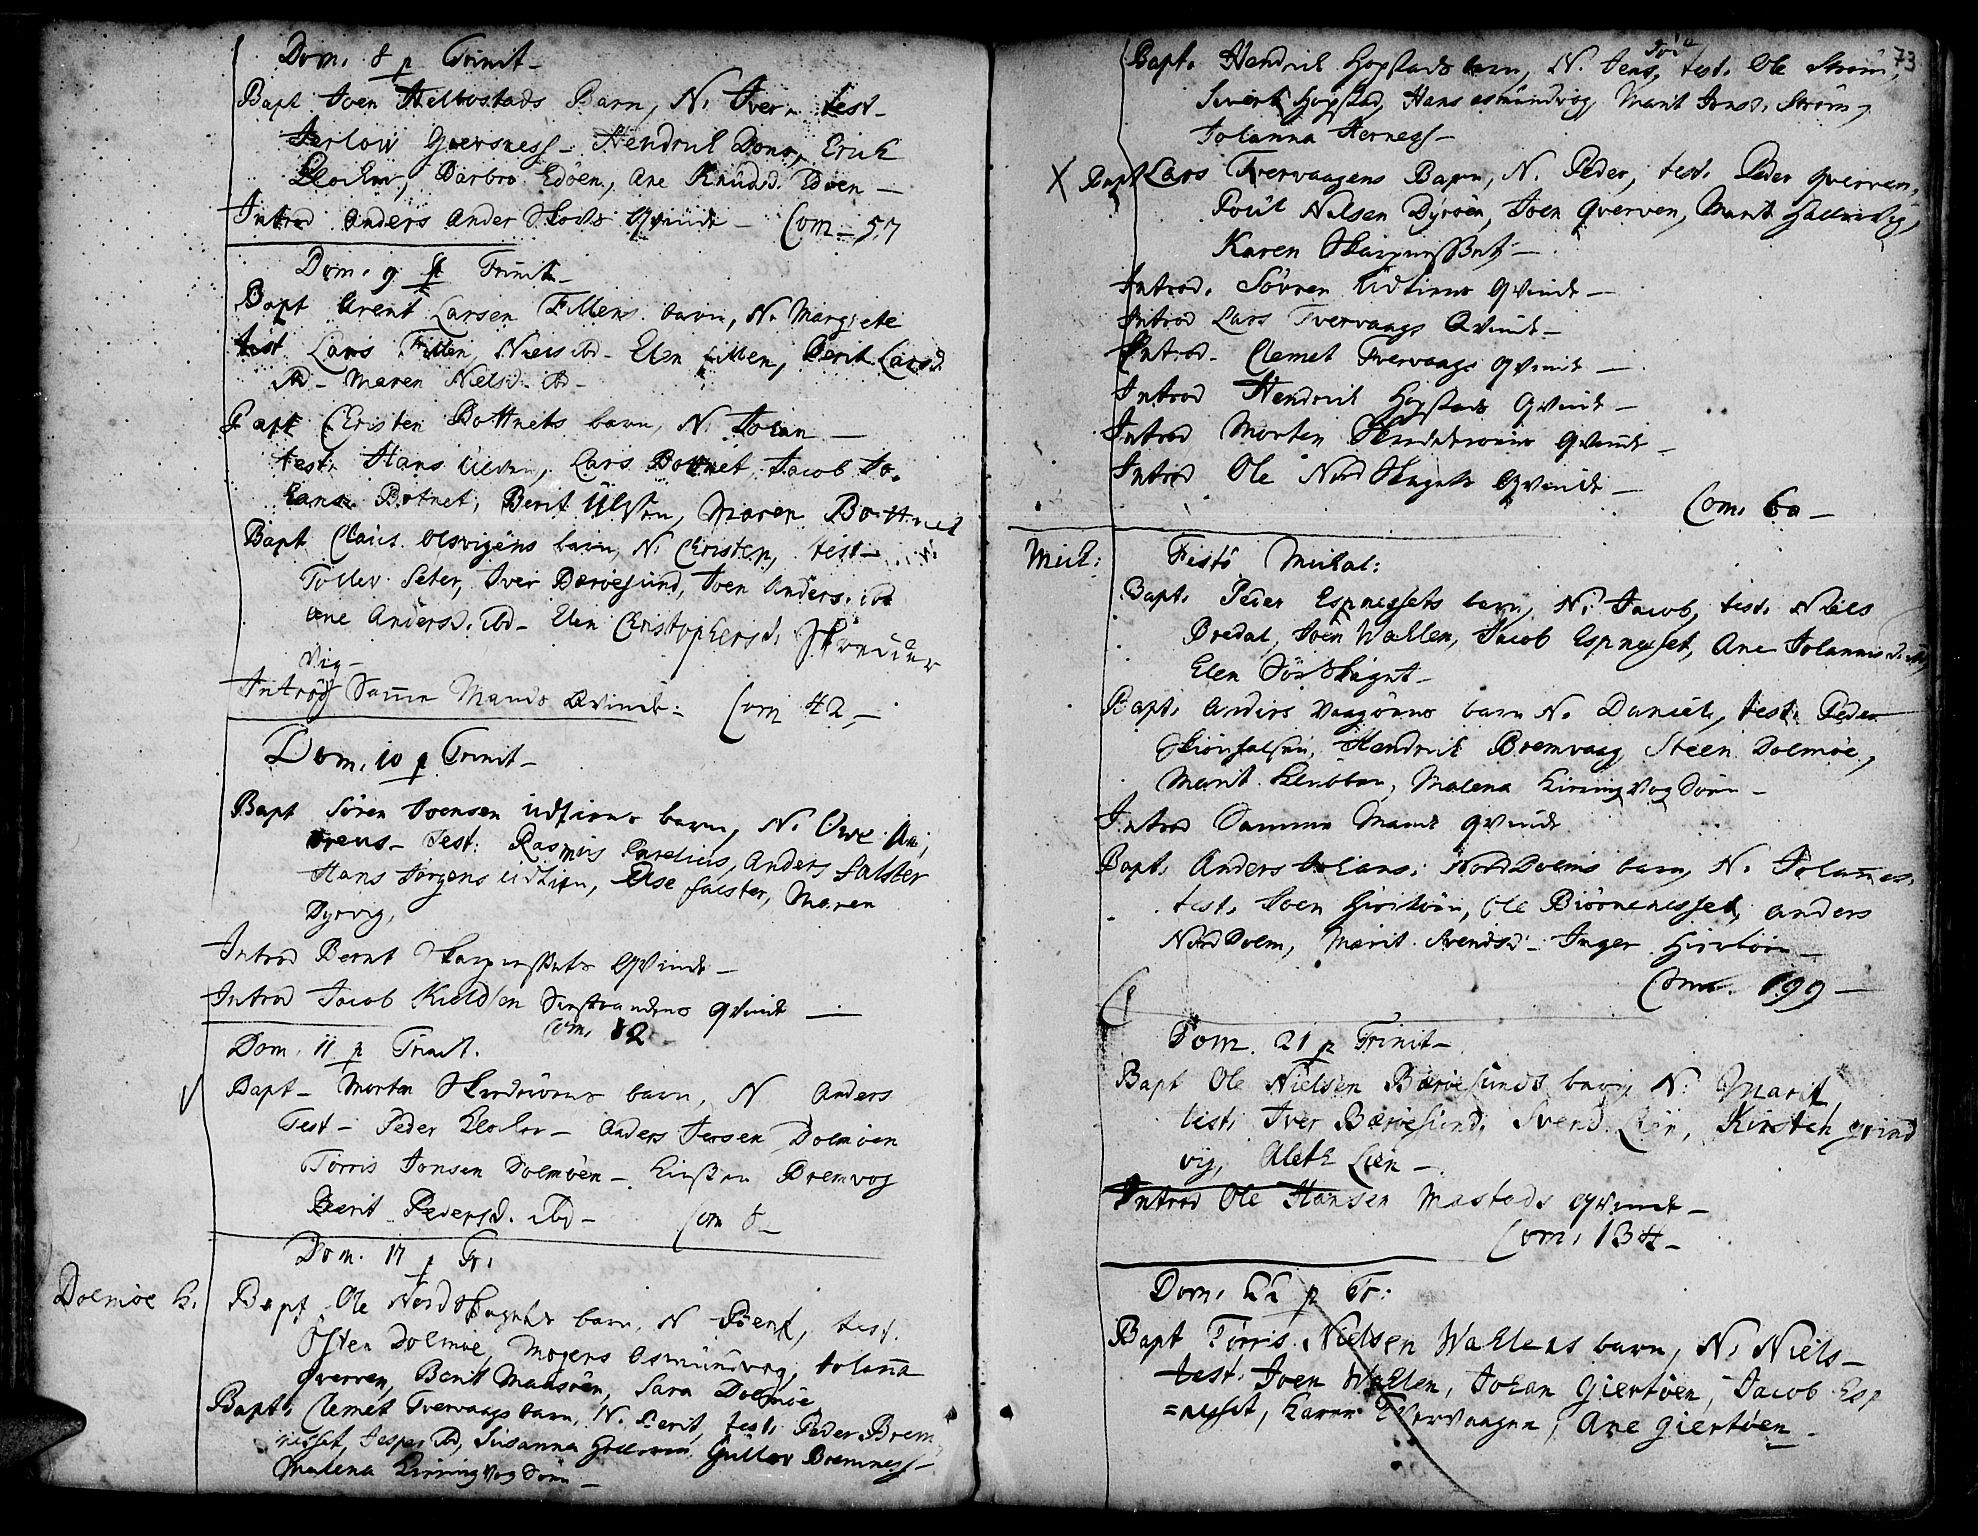 Dom. 8 p Trinit-
Bapt Joen Helbostads Barn, N. Iver - test-
Hendrich Dons, Erich
Klocker, Barbro Edöen, Ane Knudsd. Edöen -
Introd Anders Ander Skoths Qvinde - Com - 57
Dom. 9 p Trinit-
Bapt Arent Larsen Fillens barn, N. Margrete
test Lars Fillen, Niels ibd- Elen Fillen, Berit Larsd.
ibd- Maren Nielsd- ibd-
Bapt Christen Bottnets barn, N. Johan -
test. Hans Ulvøen, Lars Bottnet, Jacob Jo-
hans. Botnet, Berit Ulvøen, Maren Bottnet
Bapt Claus Olsvigens barn, N. Christen, test-
Tollev Seter, Iver Bærøesund, Joen Anders. ibd
Ane Andersd. ibd- Elen Christophersd. Skredder
vig-
Introd Samme Mands Qvinde - Com 42 -
Dom. 10 p Trinit-
Bapt Sören Joensen Udtians barn, N. Uwe An,
dreus- test: Rasmus Parelius, Anders Falster
Hans Jörgens Udtian, Else Falster, Maren
Dyrvig,
Introd Bernt Skarpnessets Qvinde -
Introd Jacob Kieldsen Sunstrandens qvinde -
Com. 12
Dom. 11 p Trinit.
Bapt- Morten Skredöens barn, N Anders
Test- Peder Klocker- Anders Jensen Dolmöen
Törris Jonsen Dolmöen - Kirsten Bremvog
Berit Pedersd. ibd- Com 5-
Dom. 17 p Tr.
Dolmöe K. Bapt Ole Nordskagets barn, N Bent, test.
Östen Dolmöe, Mogens Asmundvog, Johanna
Qverven, Berit Maasöen, Sara Dolmöe
Bapt. Clemet Tvervaags barn, N. Berit, test: Peder Brem
nesset, Jesper ibd, Susanna Gullov Bremness-
Malena Kirringvog Sön-
73
Bapt. Hendrich Hopstads barn, N. Jens, test. Ole Ström,
Sivert Hopstad, Hans Asmundvog, Marit Jonsd. Ström,
Johanna Herness-
X Bapt Lars Tvervaagens Barn, N. Peder, test. Peder Qverven,
Poul Nelsen Dyröen, Joen Qverven, Marit
Karen Skarpnesset -
Introd. Sövren Udtians Qvinde -
Introd Lars Tvervaags Qvinde -
Introd- Clemet Tvervaags qvinde -
Introd Hendrich Hopstads Qvinde -
Introd Morten Skredöens Qvinde -
Introd Ole Nordskagets Qvinde -
Com. 60 -
Mich: Festo Michal:
Bapt. Peder Espnessets barn, N. Jacob, test. Niels
Bredal, Joen Wallen, Jacob Espnesset, Ane Johannisd.
Elen Sörskaget-
Bapt. Anders Vaagöens barn N. Daniel, test. Peder
Hendrich Bremvaag, Steen Dolmöe,
Marit Klubben, Malena Kirringvog Sön -
Introd Samme Mands qvinde
Bapt. Anders Johans: Norddolms barn, N. Johannes,
test. Joen Giertöen, Ole Biörnenesset, Anders
Norddolm, Marit Svendsd- Inger Giertöen -
Com. 199 -
Dom. 21 p Trinit-
Bapt Ole Nielsen Bærøesunds barn, N. Marit,
test. Iver Bærøesund, Svend Lien, Kirsten Grind
vig, Aleth Lien -
Introd Ole Hansen Mastads qvinde -
Com. 134-
Dom. 22 p Tr:
Bapt Törris Nielsen Wallens barn, N. Niels -
test. Joen Wallen, Johan Giertöen, Jacob Esp
=nesset, Karen Tvervaagen, Ane Giertöen -